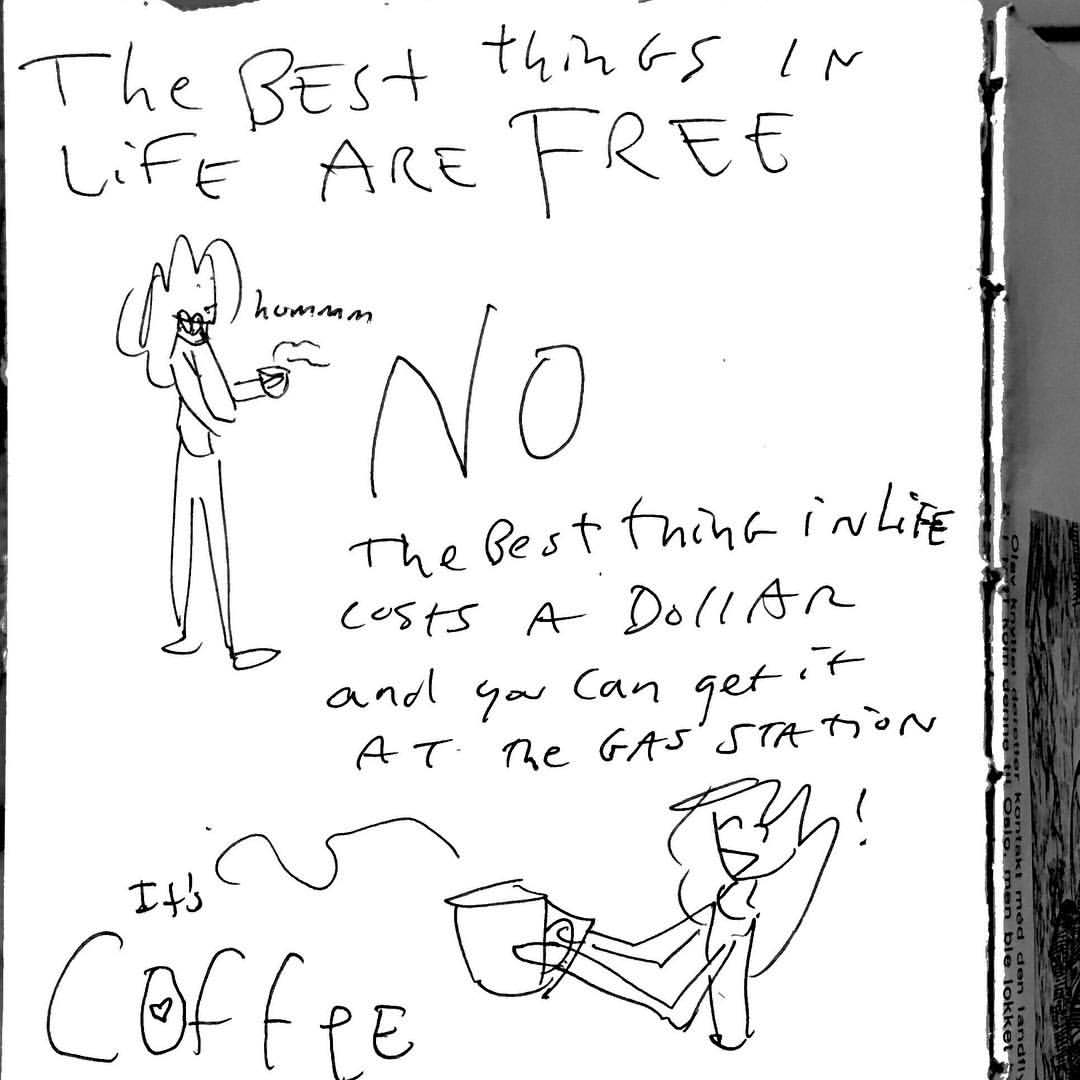 The BEST thinGS IN
LiFE ARE FREE
hummm
NO
The Best thinG iN LiFE
COSTS A DollAR
and you Can get it
AT The GAS STATiON
!
It's
COffeE
Olav knyttet deretter kontakt med den
Oslo, men ble lokket